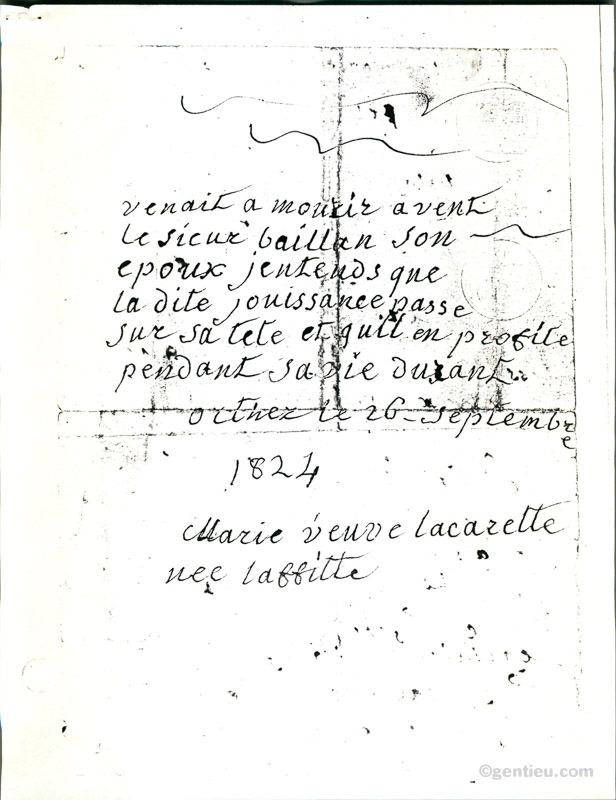 venait a mourir avent
le sieur baillan son
epoux jentends que
la dite jouissance passe
sur sa tete et quil en profite
pendant sa vie durant
orthez le 26 septembre
1824
Marie veuve lacarette
nee laffitte
©gentieu.com